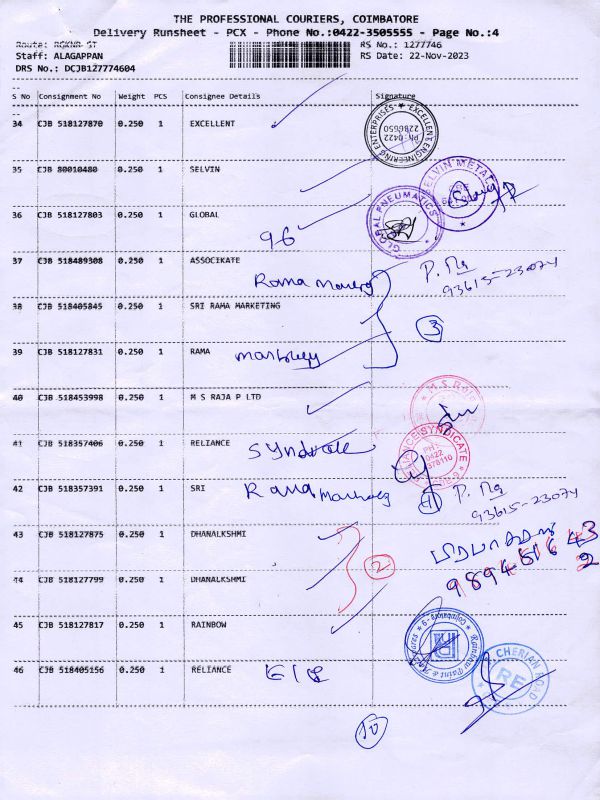 THE PROFESSIONAL COURIERS, COIMBATORE
Delivery Runsheet - PCX - Phone No.:0422-3505555 - Page No.:4
Route: RGKNR ST RS No.: 1277746
Staff: ALAGAPPAN RS Date: 22-Nov-2023
DRS No.: DCJB127774604
S No Consignment No Weight PCS Consignee Details Signature
34 CJB 518127870 0.250 1 EXCELLENT
EXCELLENT ENGINEERING ENTERPRISES
PH: 0422
2286650
35 CJB 80010480 0.250 1 SELVIN
SELVIN METAL
36 CJB 518127803 0.250 1 GLOBAL
GLOBAL PNEUMATICS
96
37 CJB 518489308 0.250 1 ASSOCIKATE
Rama P. Ma
93615-23074
38 CJB 518405845 0.250 1 SRI RAMA MARKETING
3
39 CJB 518127831 0.250 1 RAMA
40 CJB 518453998 0.250 1 M S RAJA P LTD
M.S. Raja
41 CJB 518357406 0.250 1 RELIANCE Syndicate
SYNDICATE
PH:
0422
42 CJB 518357391 0.250 1 SRI Rama P. Ma
93615-23074
43 CJB 518127875 0.250 1 DHANALKSHMI
2
44 CJB 518127799 0.250 1 DHANALKSHMI
45 CJB 518127817 0.250 1 RAINBOW
Rainbow Paint &
Coimbatore-9
46 CJB 518405156 0.250 1 RELIANCE
CHERIAN ROAD
RE
10